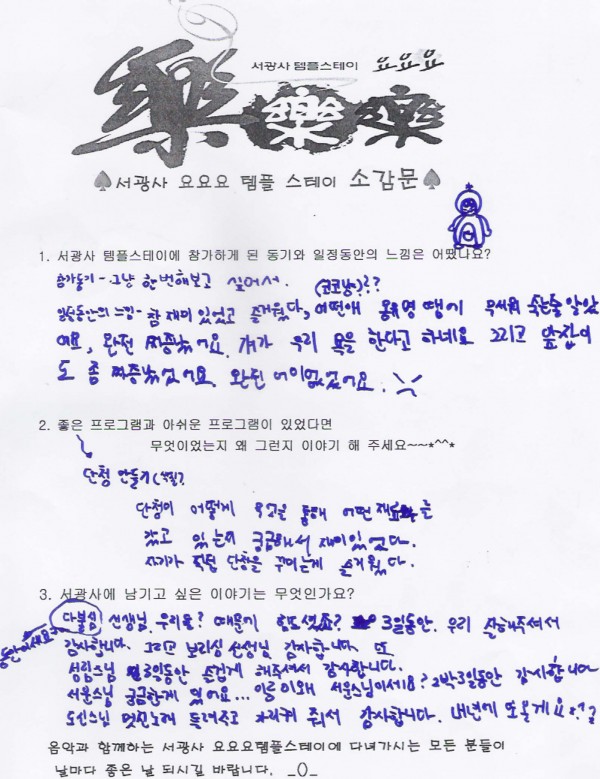 서광사 템플스테이 요요요
樂樂樂
♠서광사 요요요 템플 스테이 소감문♠
1. 서광사 템플스테이에 참가하게 된 동기와 일정동안의 느낌은 어땠나요?
참가동기 - 그냥 한번해보고 싶어서.
일정동안의 느낌 - 참 재미 있었고 즐거웠다, 어떤애
여요, 완전 짜증났어요. 걔가 우리 욕을 한다고 하네요 그리고 옆집이
도 좀 짜증났었어요 완전 어이없었어요.
2. 좋은 프로그램과 아쉬운 프로그램이 있었다면
무엇이었는지 왜 그런지 이야기 해 주세요~~*^^*
단청 만들기
단청이 어떻게 통해 어떤 재료를
갖고 있는지 궁금해서 재미있었다.
자기가 직접 단청을 꾸미는게 즐거웠다.
3. 서광사에 남기고 싶은 이야기는 무엇인가요?
다불심 선생님. 우리들? 때문에 힘드셨죠? 3일동안. 우리 잘해주셔서
동안이세요
감사합니다. 그리고 보리심 선생님 감사합니다. 또
스님 3일동안 즐겁게 해주셔서 감사합니다.
서운스님 궁금한게 있어요... 이름이왜 서운스님이세요? 2박3일동안 감사합니다
도신스님 멋진노래 들려주고 가르켜 줘서 감사합니다. 내년에 또올게요
음악과 함께하는 서광사 요요요템플스테이에 다녀가시는 모든 분들이
날마다 좋은 날 되시길 바랍니다. _()_